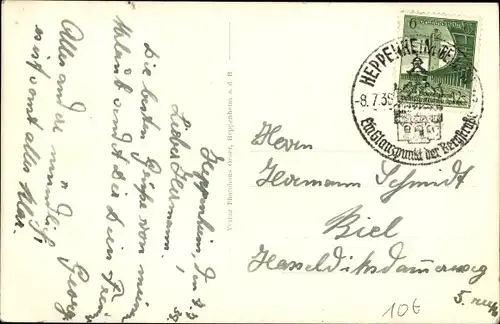 Heppenheim, den
Lieber Hermann!
Die besten Grüße von meinem
Urlaub sendet Dir Dein Freund
Georg
Alles andere mündlich
sonst alles klar.
Verlag Photohaus Heppenheim a. d. B.
6
HEPPENHEIM
8.7.39
Ein Glanzpunkt der Bergstraße
Herrn
Hermann Schmidt
Kiel
Hasseldieksdammerweg
5.
10€